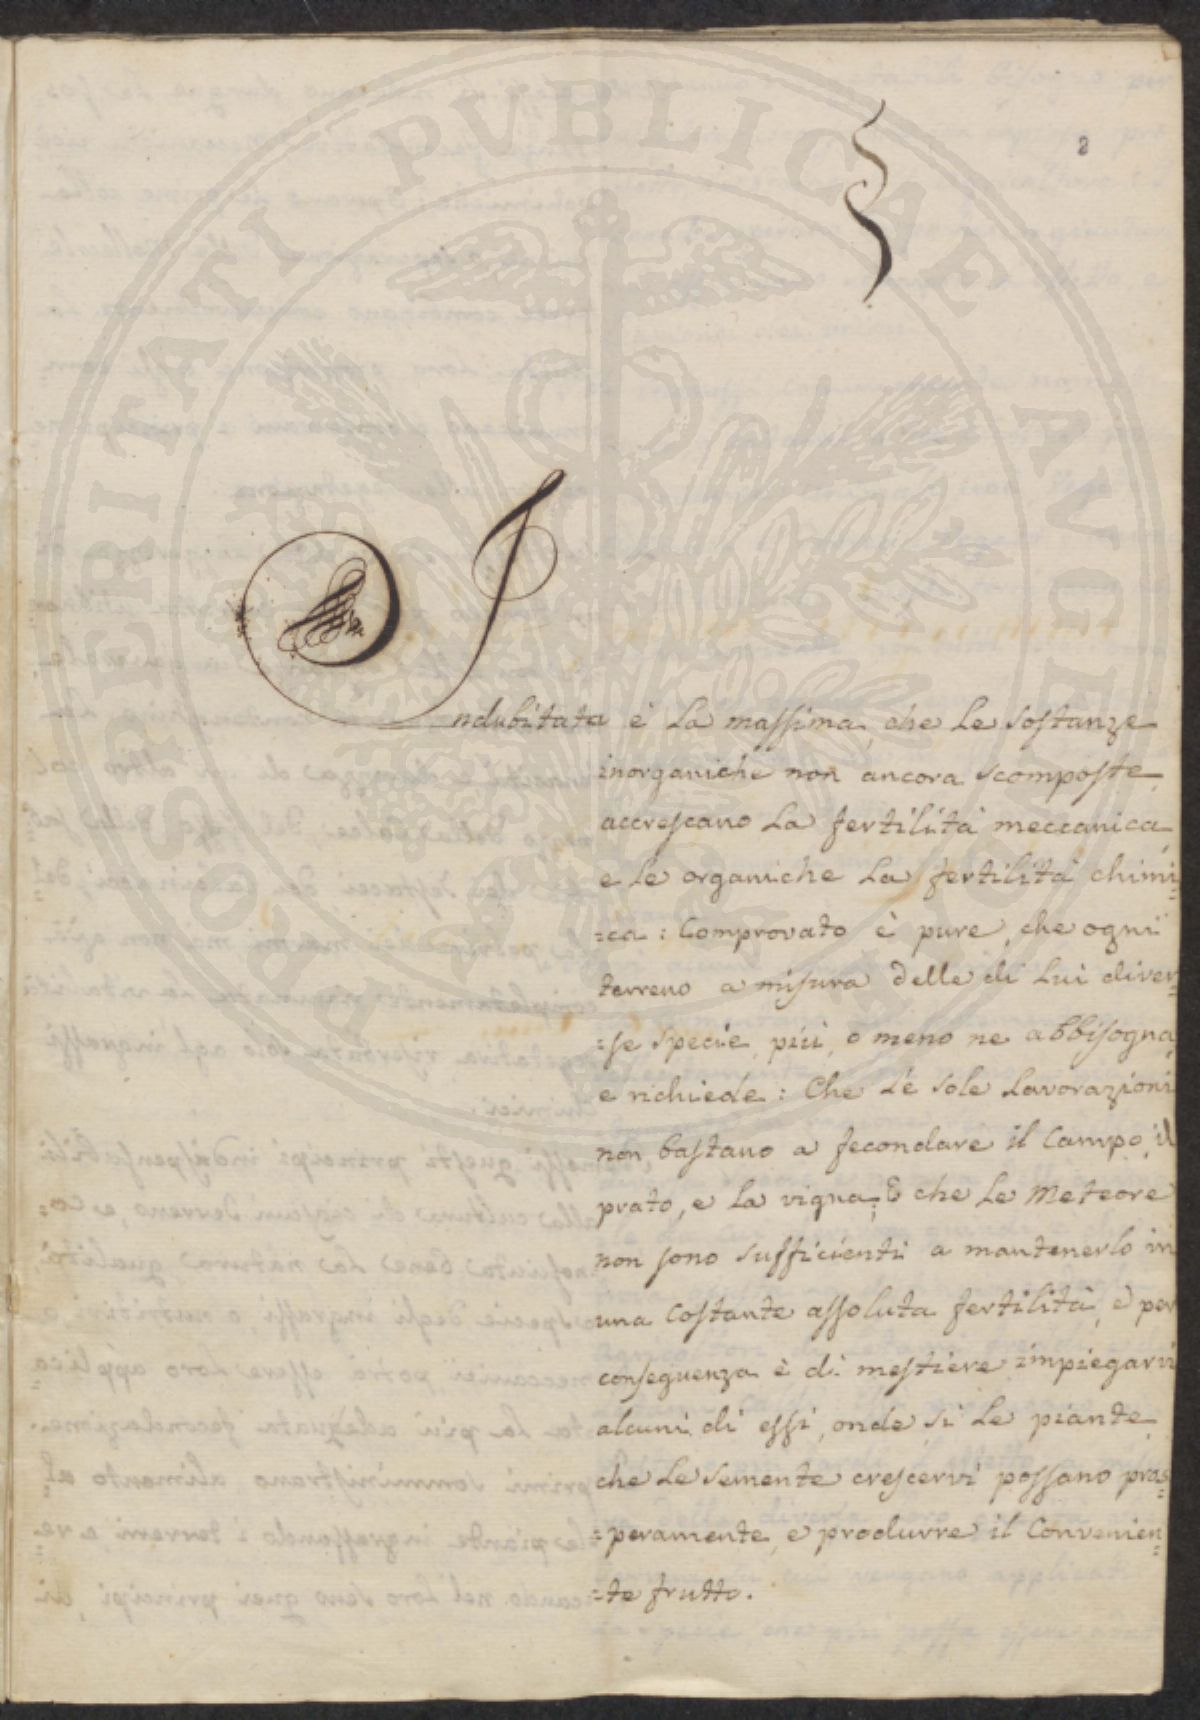 PROSPERITATI PUBLICAE AUGENDAE
2
Indubitata è la massima, che le sostanze
inorganiche non ancora scomposte
accrescano la fertilità meccanica,
e le organiche la fertilità chimi=
=ca: Comprovato è pure, che ogni
terreno a misura delle di lui diver=
=se specie, più, o meno ne abbisogna,
e richiede: Che le sole lavorazioni
non bastano a fecondare il Campo, il
prato, e la vigna; E che le Meteore
non sono sufficienti a mantenerlo in
una Costante assoluta fertilità, e per
conseguenza è di mestiere impiegarvi
alcuni di essi, onde sì le piante,
che le semente crescervi possano pros=
=peramente, e produrre il Convenien=
=te frutto.